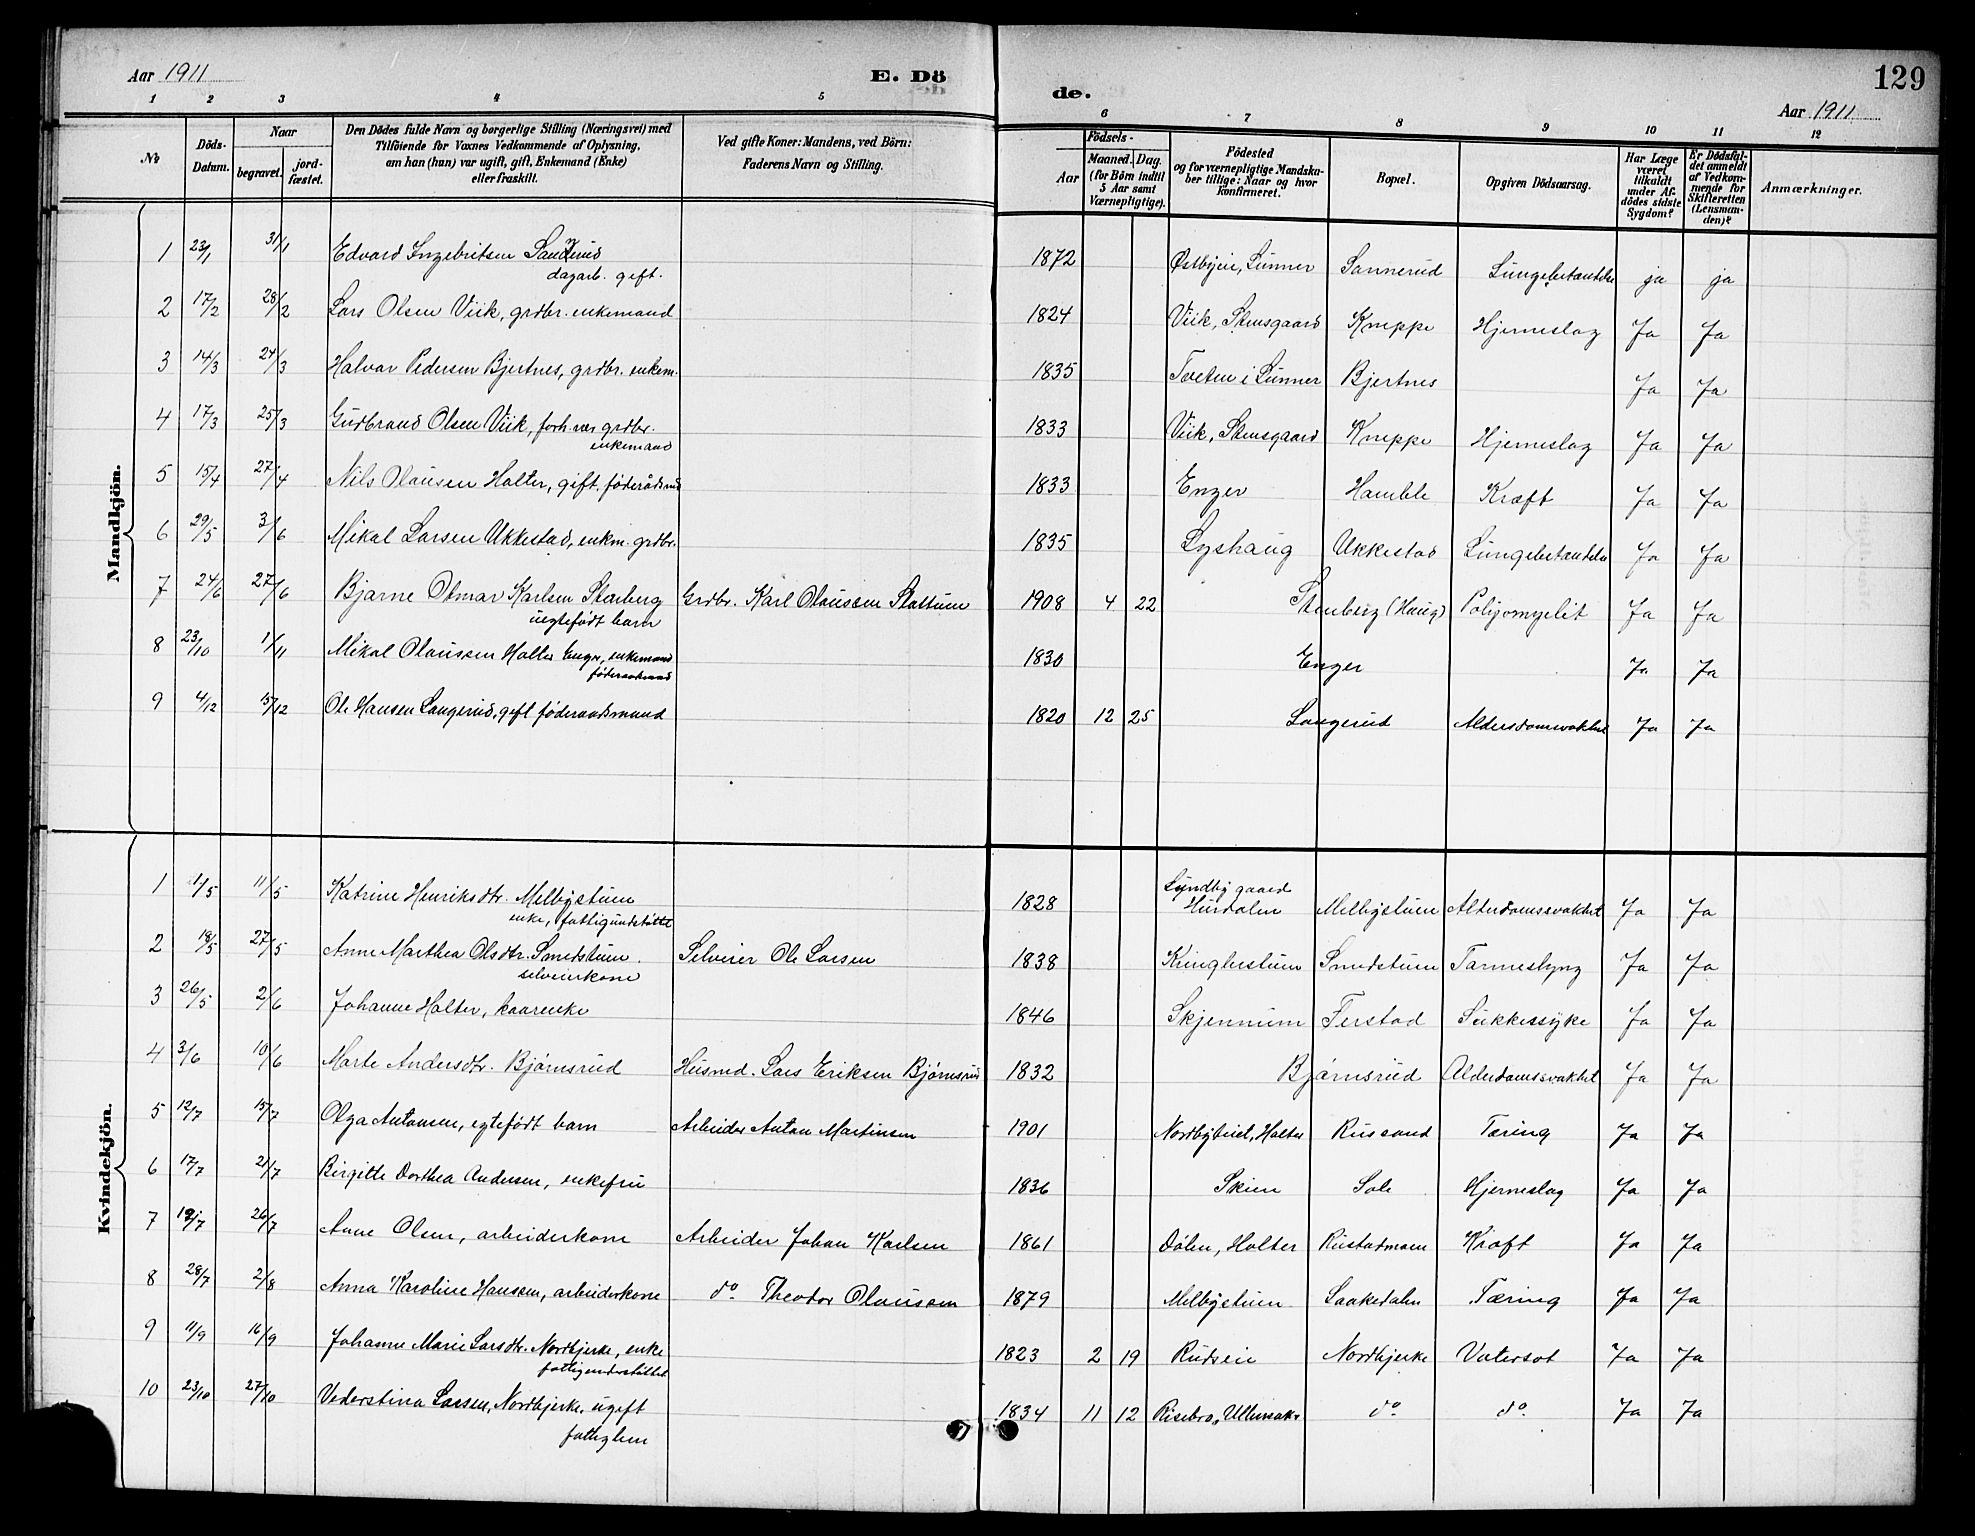 Aar 1911
E. Dö
de.
129
Aar 1911
1 2 3 4 5 6 7 8 9 10 11 12
No
Döds-Datum.
Naar
begravet.
jord-fæstet.
Den Dödes fulde Navn og borgerlige Stilling (Næringsvei) med
Tilföiende for Voxnes Vedkommende af Oplysning,
om han (hun) var ugift, gift, Enkemand (Enke)
eller fraskilt.
Ved gifte Koner: Mandens, ved Börn:
Faderens Navn og Stilling.
Födsels-
Aar
Maaned. Dag.
(for Börn indtil
5 Aar samt
Værnepligtige).
Födested
og for værnepligtige Mandska-
ber tillige: Naar og hvor
konfirmeret.
Bopæl.
Opgiven Dödsaarsag.
Har Læge
været
tilkaldt
under Af-
dödes sidste
Sygdom?
Er Dödsfal-
det anmeldt
af Vedkom-
mende for
Skifteretten
(Lensman-
den)?
Anmærkninger.
Mandkjön.
1 23/1 31/1 Edvard Ingebritsen Sannerud 1872 Østbyeie, Lunner Sannerud Lungebetændelse ja ja
dagarb. gift.
2 17/2 28/2 Lars Olsen Viik, grdbr. enkemand 1824 Viik, Stensgaard Kneppe Hjerneslag Ja Ja
3 14/3 24/3 Halvor Pedersen Bjertnes, grdbr. enkem. 1835 Tveten i Lunner Bjertnes Ja Ja
4 17/3 25/3 Gudbrand Olsen Viik, forh. vær grdbr. 1833 Viik, Stensgaard Kneppe Hjerneslag Ja Ja
enkemand
5 15/4 27/4 Nils Olausen Holter, gift. föderådsmd 1833 Enger Hamble Kræft Ja Ja
6 29/5 3/6 Mikal Larsen Ukkestad, enkm. grdbr. 1835 Lyshaug Ukkestad Lungebetændelse Ja Ja
7 24/6 27/6 Bjarne Otmar Karlsen Stenberg Grdbr. Karl Olaussen Slattum 1908 4 22 Stenberg (Haug) Poliyomyelit Ja Ja
uegtefödt barn
8 23/10 1/11 Mikal Olaussen Holter Enger, enkemand 1830 Enger Ja Ja
föderaadsmand
9 4/12 15/12 Ole Hansen Langerud, gift föderaadsmand 1820 12 25 Langerud Aldersdomsvakhet Ja Ja
Kvindekjön.
1 1/5 11/5 Katrine Henriksdtr. Melbystuen 1828 Lyndby gaard
Hurdalen Melbystuen Alderdomssvakhet Ja Ja
enke, fattigunderstöttet
2 18/5 27/5 Anne Marthea Olsdtr. Smedstuen. Selveier Ole Larsen 1838 Kinglerstuen Smedstuen Tarmeslyng Ja Ja
selveierkone
3 26/5 2/6 Johanne Holter, kaarenke 1846 Skjennum Ferstad Sukkersyke Ja Ja
4 3/6 10/6 Marte Andersdtr. Bjørnsrud Husmd. Lars Eriksen Bjørnsrud 1832 Bjørnsrud Alderdomssvakhet Ja Ja
5 12/7 15/7 Olga Antonsen, egtefödt barn Arbeider Anton Martinsen 1901 Nordbyeiet, Holter Russand Tæring Ja Ja
6 17/7 21/7 Birgitte Dorthea Andersen, enkefru 1836 Skien Sole Hjerneslag Ja Ja
7 19/7 26/7 Anne Olsen, arbeiderkone Arbeider Johan Karlsen 1861 Dølen, Holter Rustadmoen Kræft Ja Ja
8 28/7 2/8 Anna Karoline Hanssen, arbeiderkone do. Theodor Olaussen 1879 Melbystuen Saakedalen Tæring Ja Ja
9 11/9 16/9 Johanne Marie Larsdtr. Nordbjerke, enke 1823 2 19 Rudseie Nordbjerke Vatersot Ja Ja
fattigunderstöttet
10 23/10 27/10 Vederstina Larsen, Nordbjerke, ugift 1834 11 12 Risebro, Ullensaker do. do. Ja Ja
fattiglem